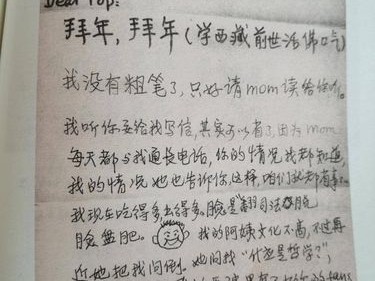 Dear Pop:
拜年,拜年(学西藏前世活佛口气)
我没有粗笔了,只好请mom读给你听。
我听你要给我写信,其实可以省了,因为mom
每天都与我通长电话,你的情况我都知道,
我的情况她也告诉你,这样,咱们就都省事
我现在吃得多去得多,脸是
脸盘肥。我的阿姨文化不高,不过再
近她把我问倒。她问我"什么是哲学?",